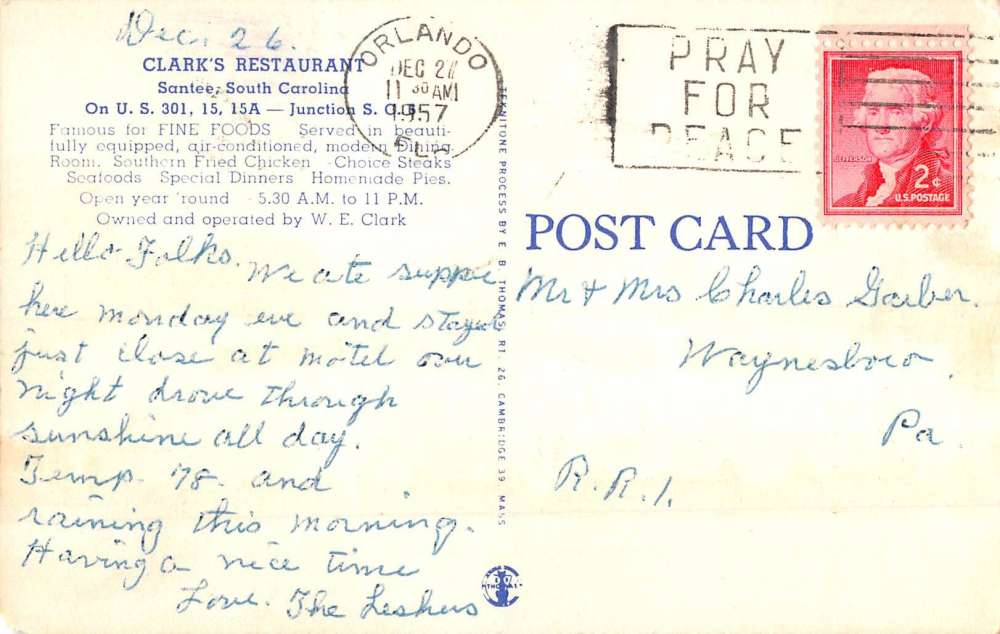 Dec. 26.
CLARK'S RESTAURANT
Santee, South Carolina
On U. S. 301, 15, 15A — Junction S. C. 6
Famous for FINE FOODS Served in beauti-
fully equipped, air-conditioned, modern Dining
Room. Southern Fried Chicken - Choice Steaks
Seafoods Special Dinners Homemade Pies.
Open year 'round - 5.30 A.M. to 11 P.M.
Owned and operated by W. E. Clark
Hello Folks. We ate suppe
here monday eve and stayed
just close at motel over
night drove through
sunshine all day.
Temp. 78. and
raining this morning.
Having a nice time
Love. The Leshers
ORLANDO
DEC 2
11 30 AM
1957
FLA
PRAY
FOR
PEACE
JEFFERSON
2¢
U.S. POSTAGE
POST CARD
Mr & Mrs Charles Garber.
Waynesboro
Pa.
R.R.1.
TEKNITONE PROCESS BY E. B. THOMAS, RT. 26, CAMBRIDGE 39, MASS
THOMAS